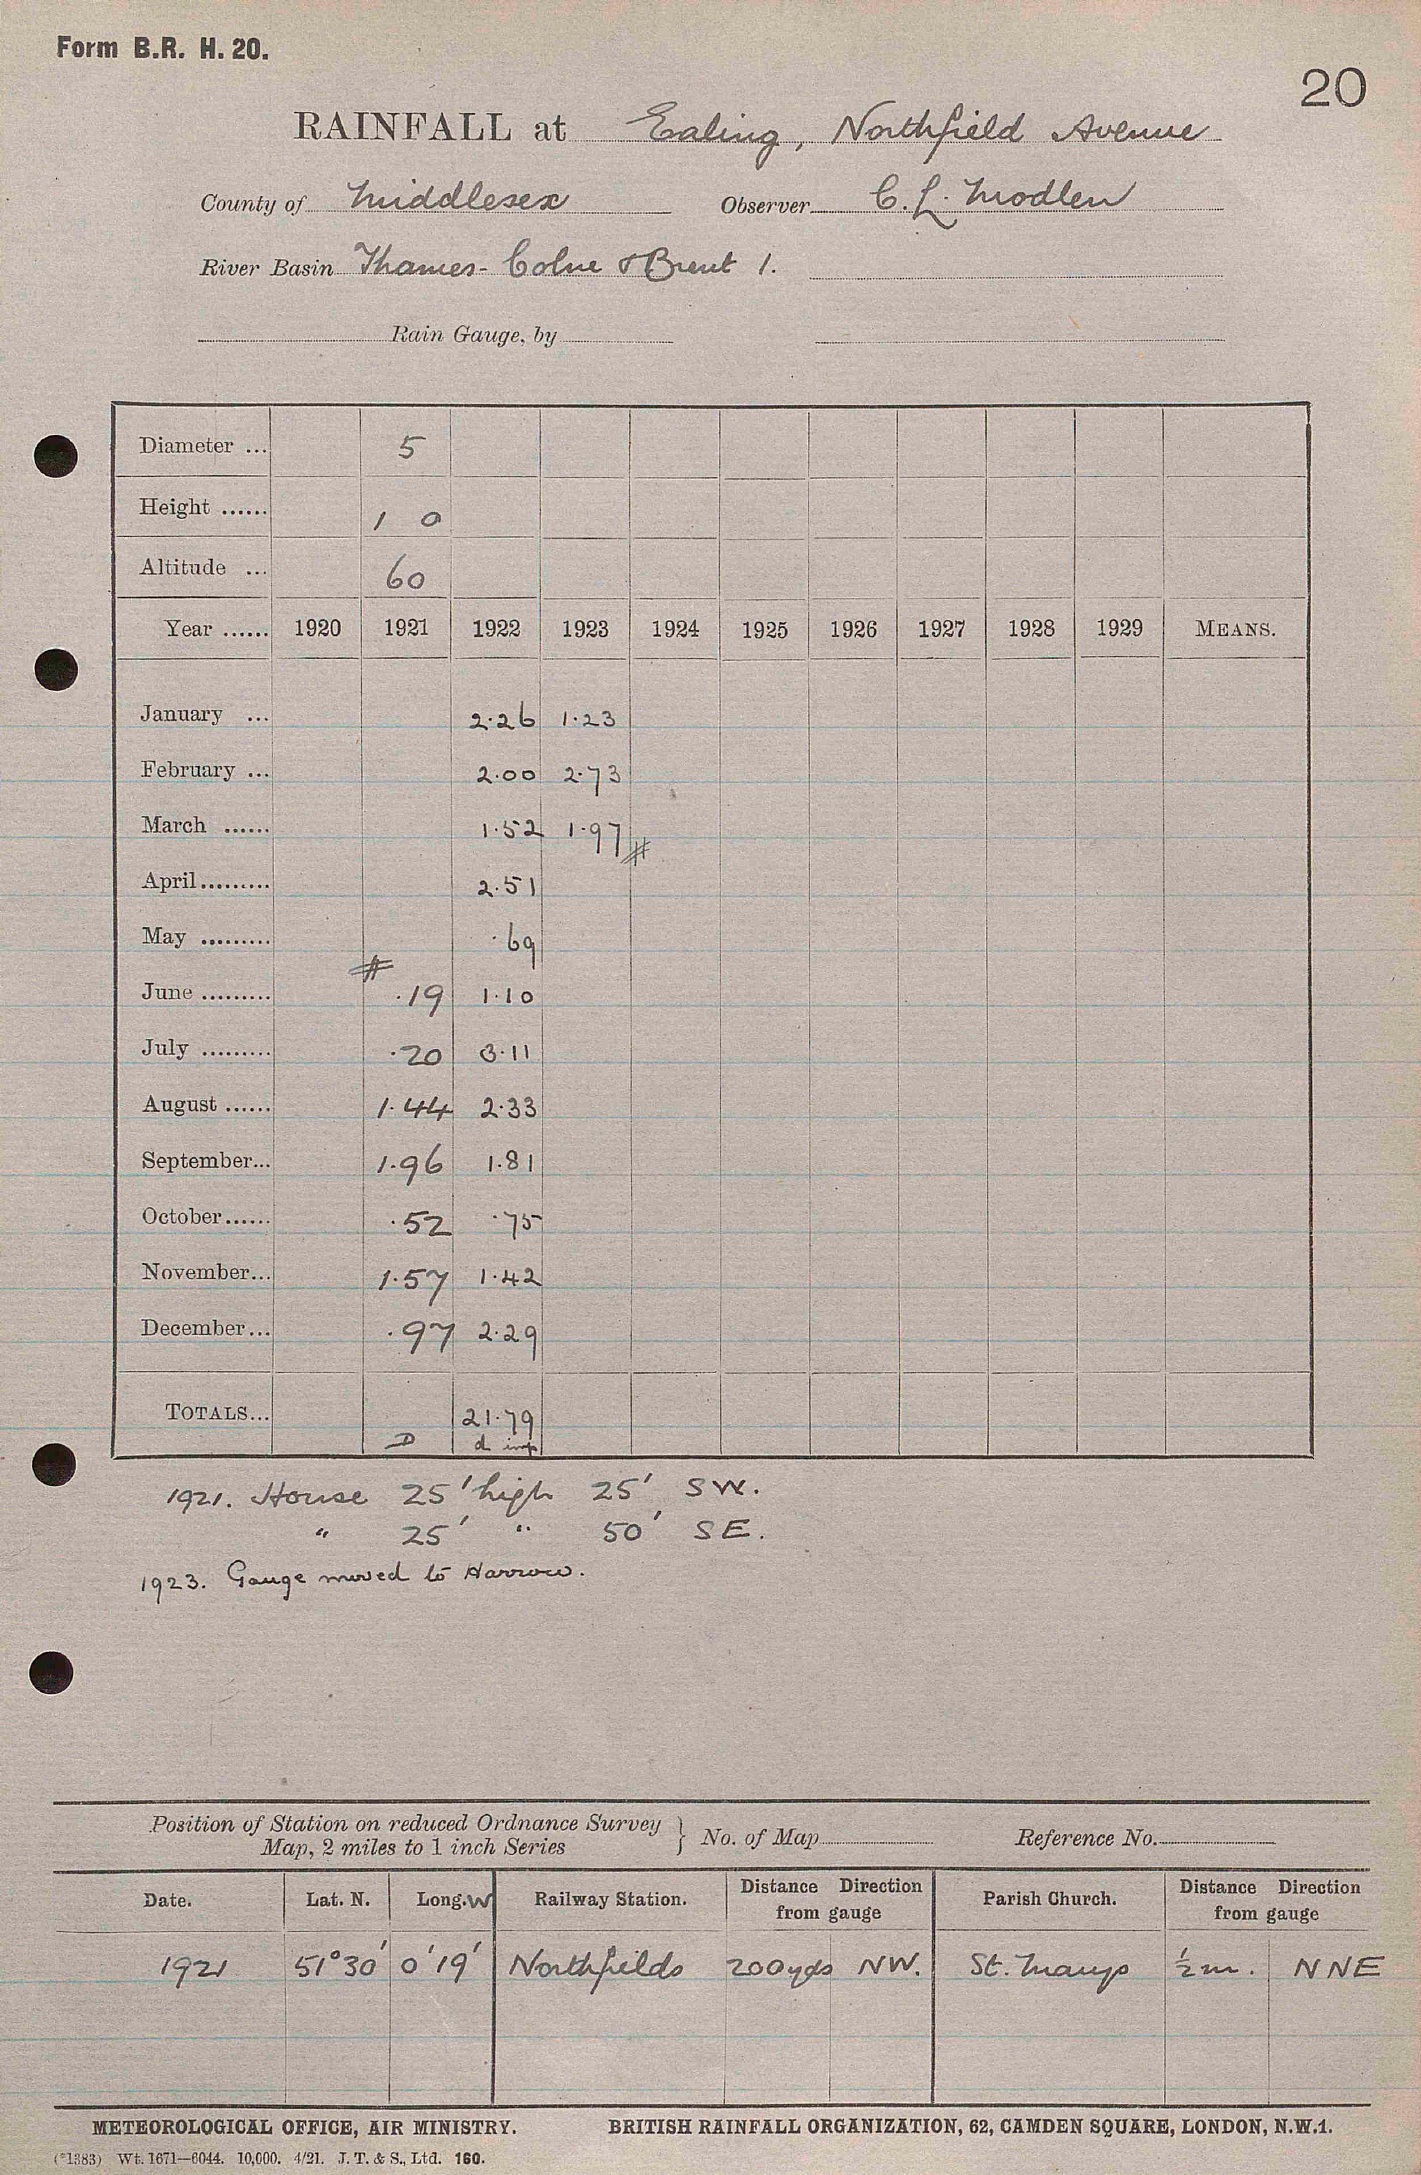 Form B.R. H. 20.
20
RAINFALL at Ealing, Northfield Avenue
County of Middlesex Observer C. L. Modlen
River Basin Thames - Colne & Brent 1.
Rain Gauge, by
Diameter ... 5
Height ...... 1 0
Altitude ... 60
Year ...... 1920 1921 1922 1923 1924 1925 1926 1927 1928 1929 MEANS.
January ... 2.26 1.23
February ... 2.00 2.73
March ...... 1.52 1.97 #
April......... 2.51
May ......... .69
June ......... # .19 1.10
July ......... .20 3.11
August ...... 1.44 2.33
September... 1.96 1.81
October...... .52 .75
November... 1.57 1.42
December... .97 2.29
TOTALS... 21.79
D d imp
1921. House 25' high 25' SW.
" 25' " 50' SE.
1923. Gauge moved to Harrow.
Position of Station on reduced Ordnance Survey
Map, 2 miles to 1 inch Series } No. of Map Reference No.
Date. Lat. N. Long. W Railway Station. Distance Direction from gauge Parish Church. Distance Direction from gauge
1921 51°30' 0'19' Northfields 200yds NW. St. Marys ½m. NNE
METEOROLOGICAL OFFICE, AIR MINISTRY. BRITISH RAINFALL ORGANIZATION, 62, CAMDEN SQUARE, LONDON, N.W.1.
(*1383) Wt. 1671—6044. 10,000. 4/21. J. T. & S., Ltd. 160.